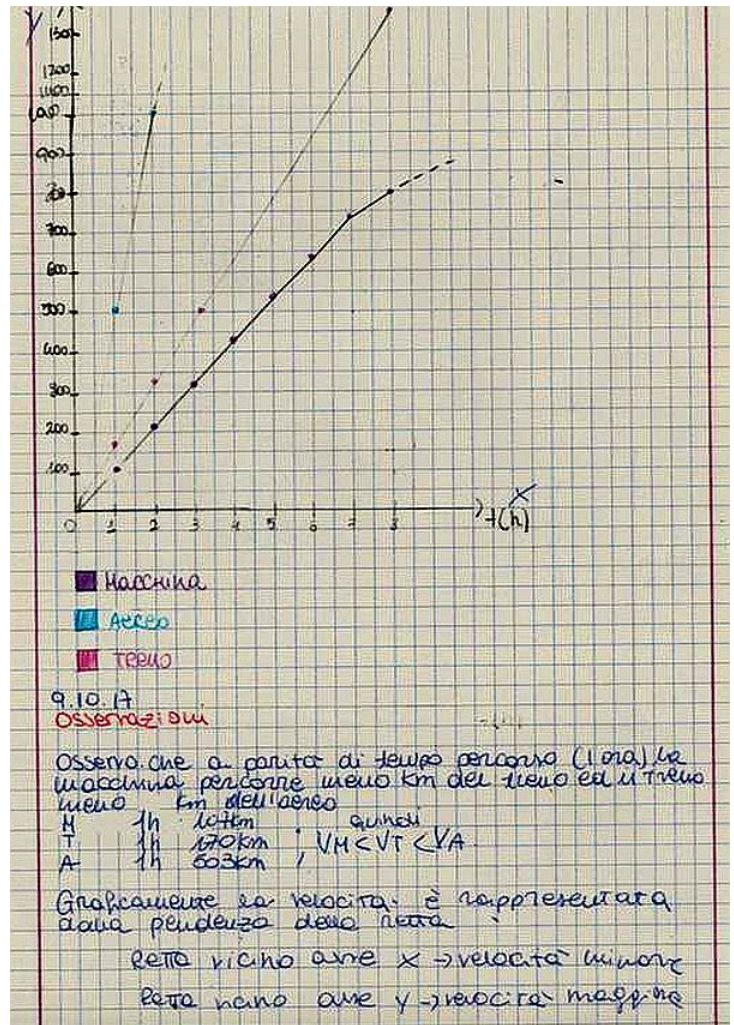 y
1200
1100
1000
900
700
600
500
400
300
200
100
0 1 2 3 4 5 6 7 8 t(h) x
Macchina
Aereo
Treno
9.10.17
Osservazioni
Osservo che a parità di tempo percorso (1 ora) la
macchina percorre meno km del treno ed il treno
meno km dell'aereo
M 1h 107km quindi
T 1h 170km ; VM<VT<VA
A 1h 503km ;
Graficamente la velocità è rappresentata
dalla pendenza della retta
Retta vicino asse x → velocità minore
Retta vicino asse y → velocità maggiore